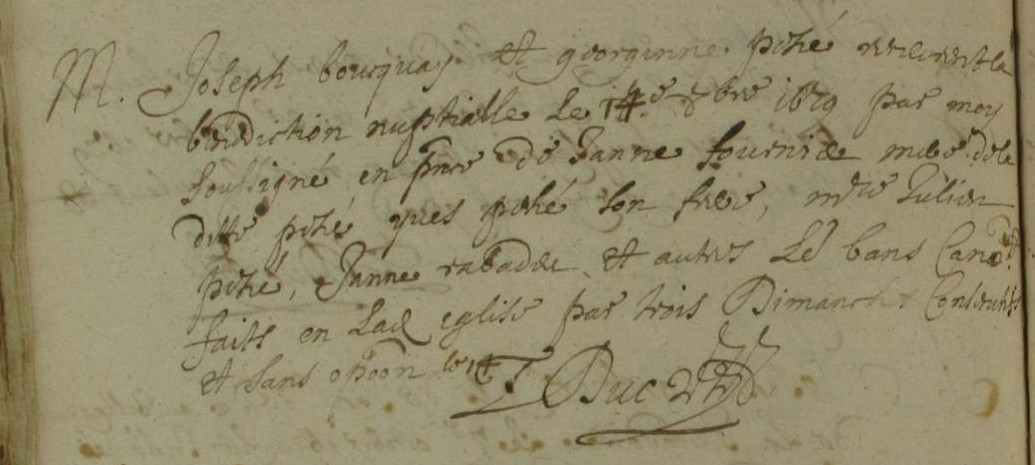 M. Joseph bourquay et georginne pihé receurent la
benediction nuptialle le 14e 8bre 1679 par moy
soussigné en pnce de Janne fournie mere de la
ditte pihé yues pihé son frere, mtre Julien
pihé, Janne rabadeu et autres Les bans Canoqt
faits en Lad eglise par trois Dimanches Consecutifs
et sans opoon le 14 J Duc